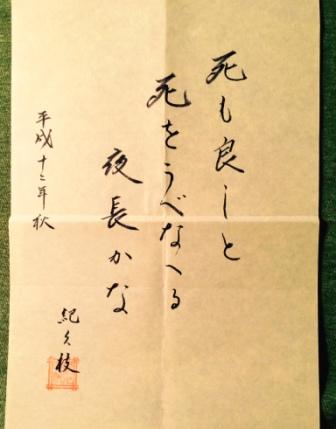 死も良しと
死をうべなへる
夜長かな
平成十二年秋
紀久枝